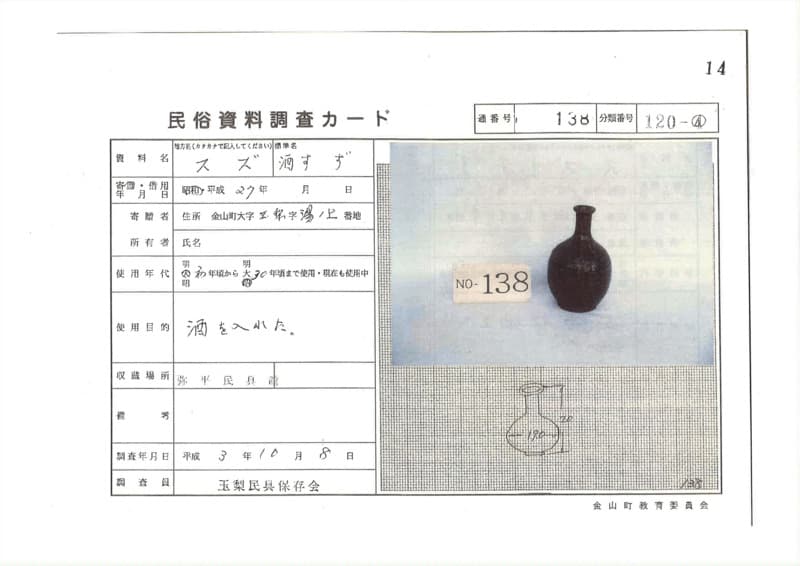 14
民俗資料調査カード
通番号 138 分類番号 120-④
資料名 地方名(カタカナで記入してください) スズ 標準名 酒すず
寄贈・借用年月日 昭和・平成 27年 月 日
寄贈者 住所 金山町大字 字湯ノ上 番地
所有者 氏名
使用年代 明大昭 初年頃から 明大昭 30年頃まで使用・現在も使用中
使用目的 酒を入れた。
収蔵場所 弥平民具館
備考
調査年月日 平成 3年 10月 8日
調査員 玉梨民具保存会
NO-138
20
190
138
金山町教育委員会